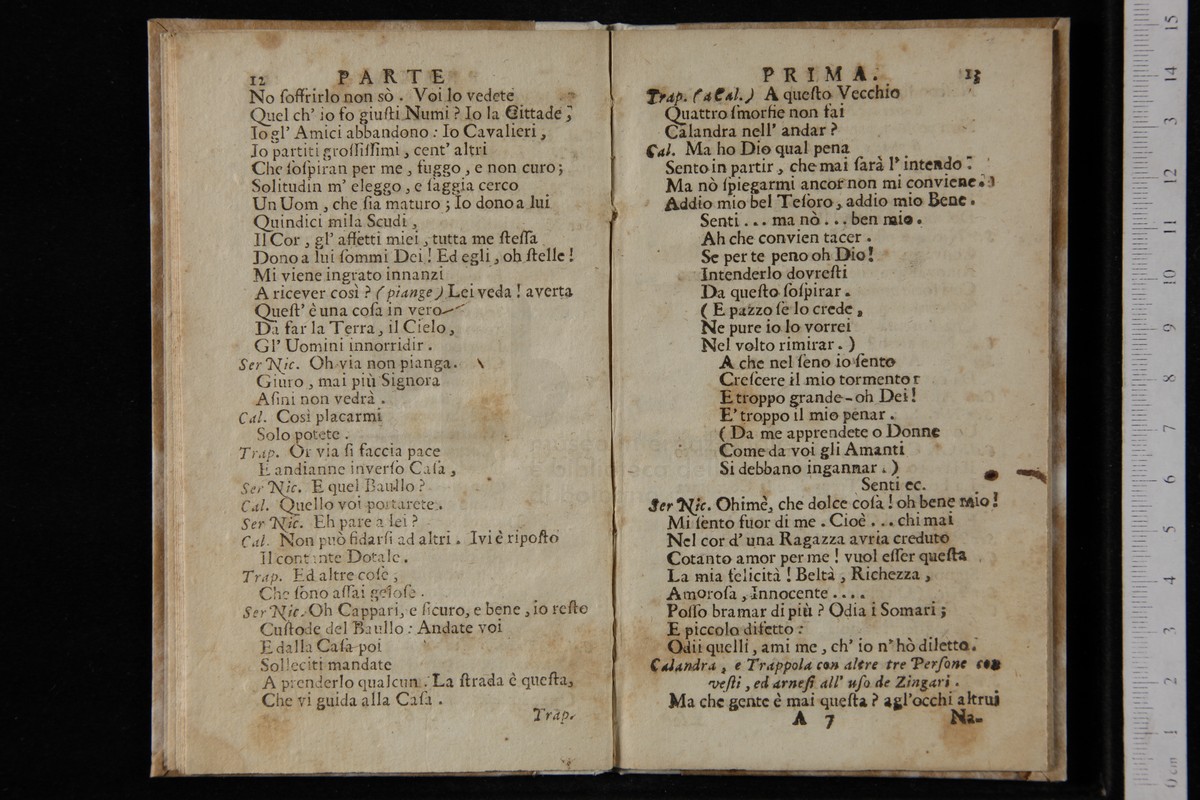 12 PARTE
No ſoffrirlo non sò . Voi lo vedete
Quel ch' io fo giuſti Numi ? Io la Cittade ,
Io gl' Amici abbandono : Io Cavalieri ,
Io partiti groſſiſſimi , cent' altri
Che ſoſpiran per me , fuggo , e non curo ;
Solitudin m' eleggo , e ſaggia cerco
Un Uom , che ſia maturo ; Io dono a lui
Quindici mila Scudi ,
Il Cor , gl' affetti miei , tutta me ſteſſa
Dono a lui ſommi Dei ! Ed egli , oh ſtelle !
Mi viene ingrato innanzi
A ricever così ? ( piange ) Lei veda ! averta
Queſt' è una coſa in vero
Da far la Terra , il Cielo ,
Gl' Uomini innorridir .
Ser Nic. Oh via non pianga .
Giuro , mai più Signora
Aſini non vedrà .
Cal. Così placarmi
Solo potete .
Trap. Or via ſi faccia pace
E andianne inverſo Caſa ,
Ser Nic. E quel Baullo ?
Cal. Quello voi portarete .
Ser Nic. Eh pare a lei ?
Cal. Non può fidarſi ad altri . Ivi è ripoſto
Il contante Dotale .
Trap. Ed altre coſe ,
Che ſono aſſai geloſe .
Ser Nic. Oh Cappari , e ſicuro , e bene , io reſto
Cuſtode del Baullo : Andate voi
E dalla Caſa poi
Solleciti mandate
A prenderlo qualcun . La ſtrada è queſta ,
Che vi guida alla Caſa .
Trap.
PRIMA. 13
Trap. ( a Cal. ) A queſto Vecchio
Quattro ſmorfie non fai
Calandra nell' andar ?
Cal. Ma ho Dio qual pena
Sento in partir , che mai ſarà l' intendo .
Ma nò ſpiegarmi ancor non mi conviene .
Addio mio bel Teſoro , addio mio Bene .
Senti ... ma nò ... ben mio .
Ah che convien tacer .
Se per te peno oh Dio !
Intenderlo dovreſti
Da queſto ſoſpirar .
( E pazzo ſe lo crede ,
Ne pure io lo vorrei
Nel volto rimirar . )
A che nel ſeno io ſento
Creſcere il mio tormento r
E troppo grande - oh Dei !
E' troppo il mio penar .
( Da me apprendete o Donne
Come da voi gli Amanti
Si debbano ingannar . )
Senti ec.
Ser Nic. Ohimè , che dolce coſa ! oh bene mio !
Mi ſento fuor di me . Cioè ... chi mai
Nel cor d' una Ragazza avria creduto
Cotanto amor per me ! vuol eſſer queſta
La mia felicità ! Beltà , Richezza ,
Amoroſa , Innocente ....
Poſſo bramar di più ? Odia i Somari ;
E piccolo difetto :
Odii quelli , ami me , ch' io n' hò diletto .
Calandra , e Trappola con altre tre Perſone con
veſti , ed arneſi all' uſo de Zingari .
Ma che gente è mai queſta ? agl' occhi altrui
A 7 Na-